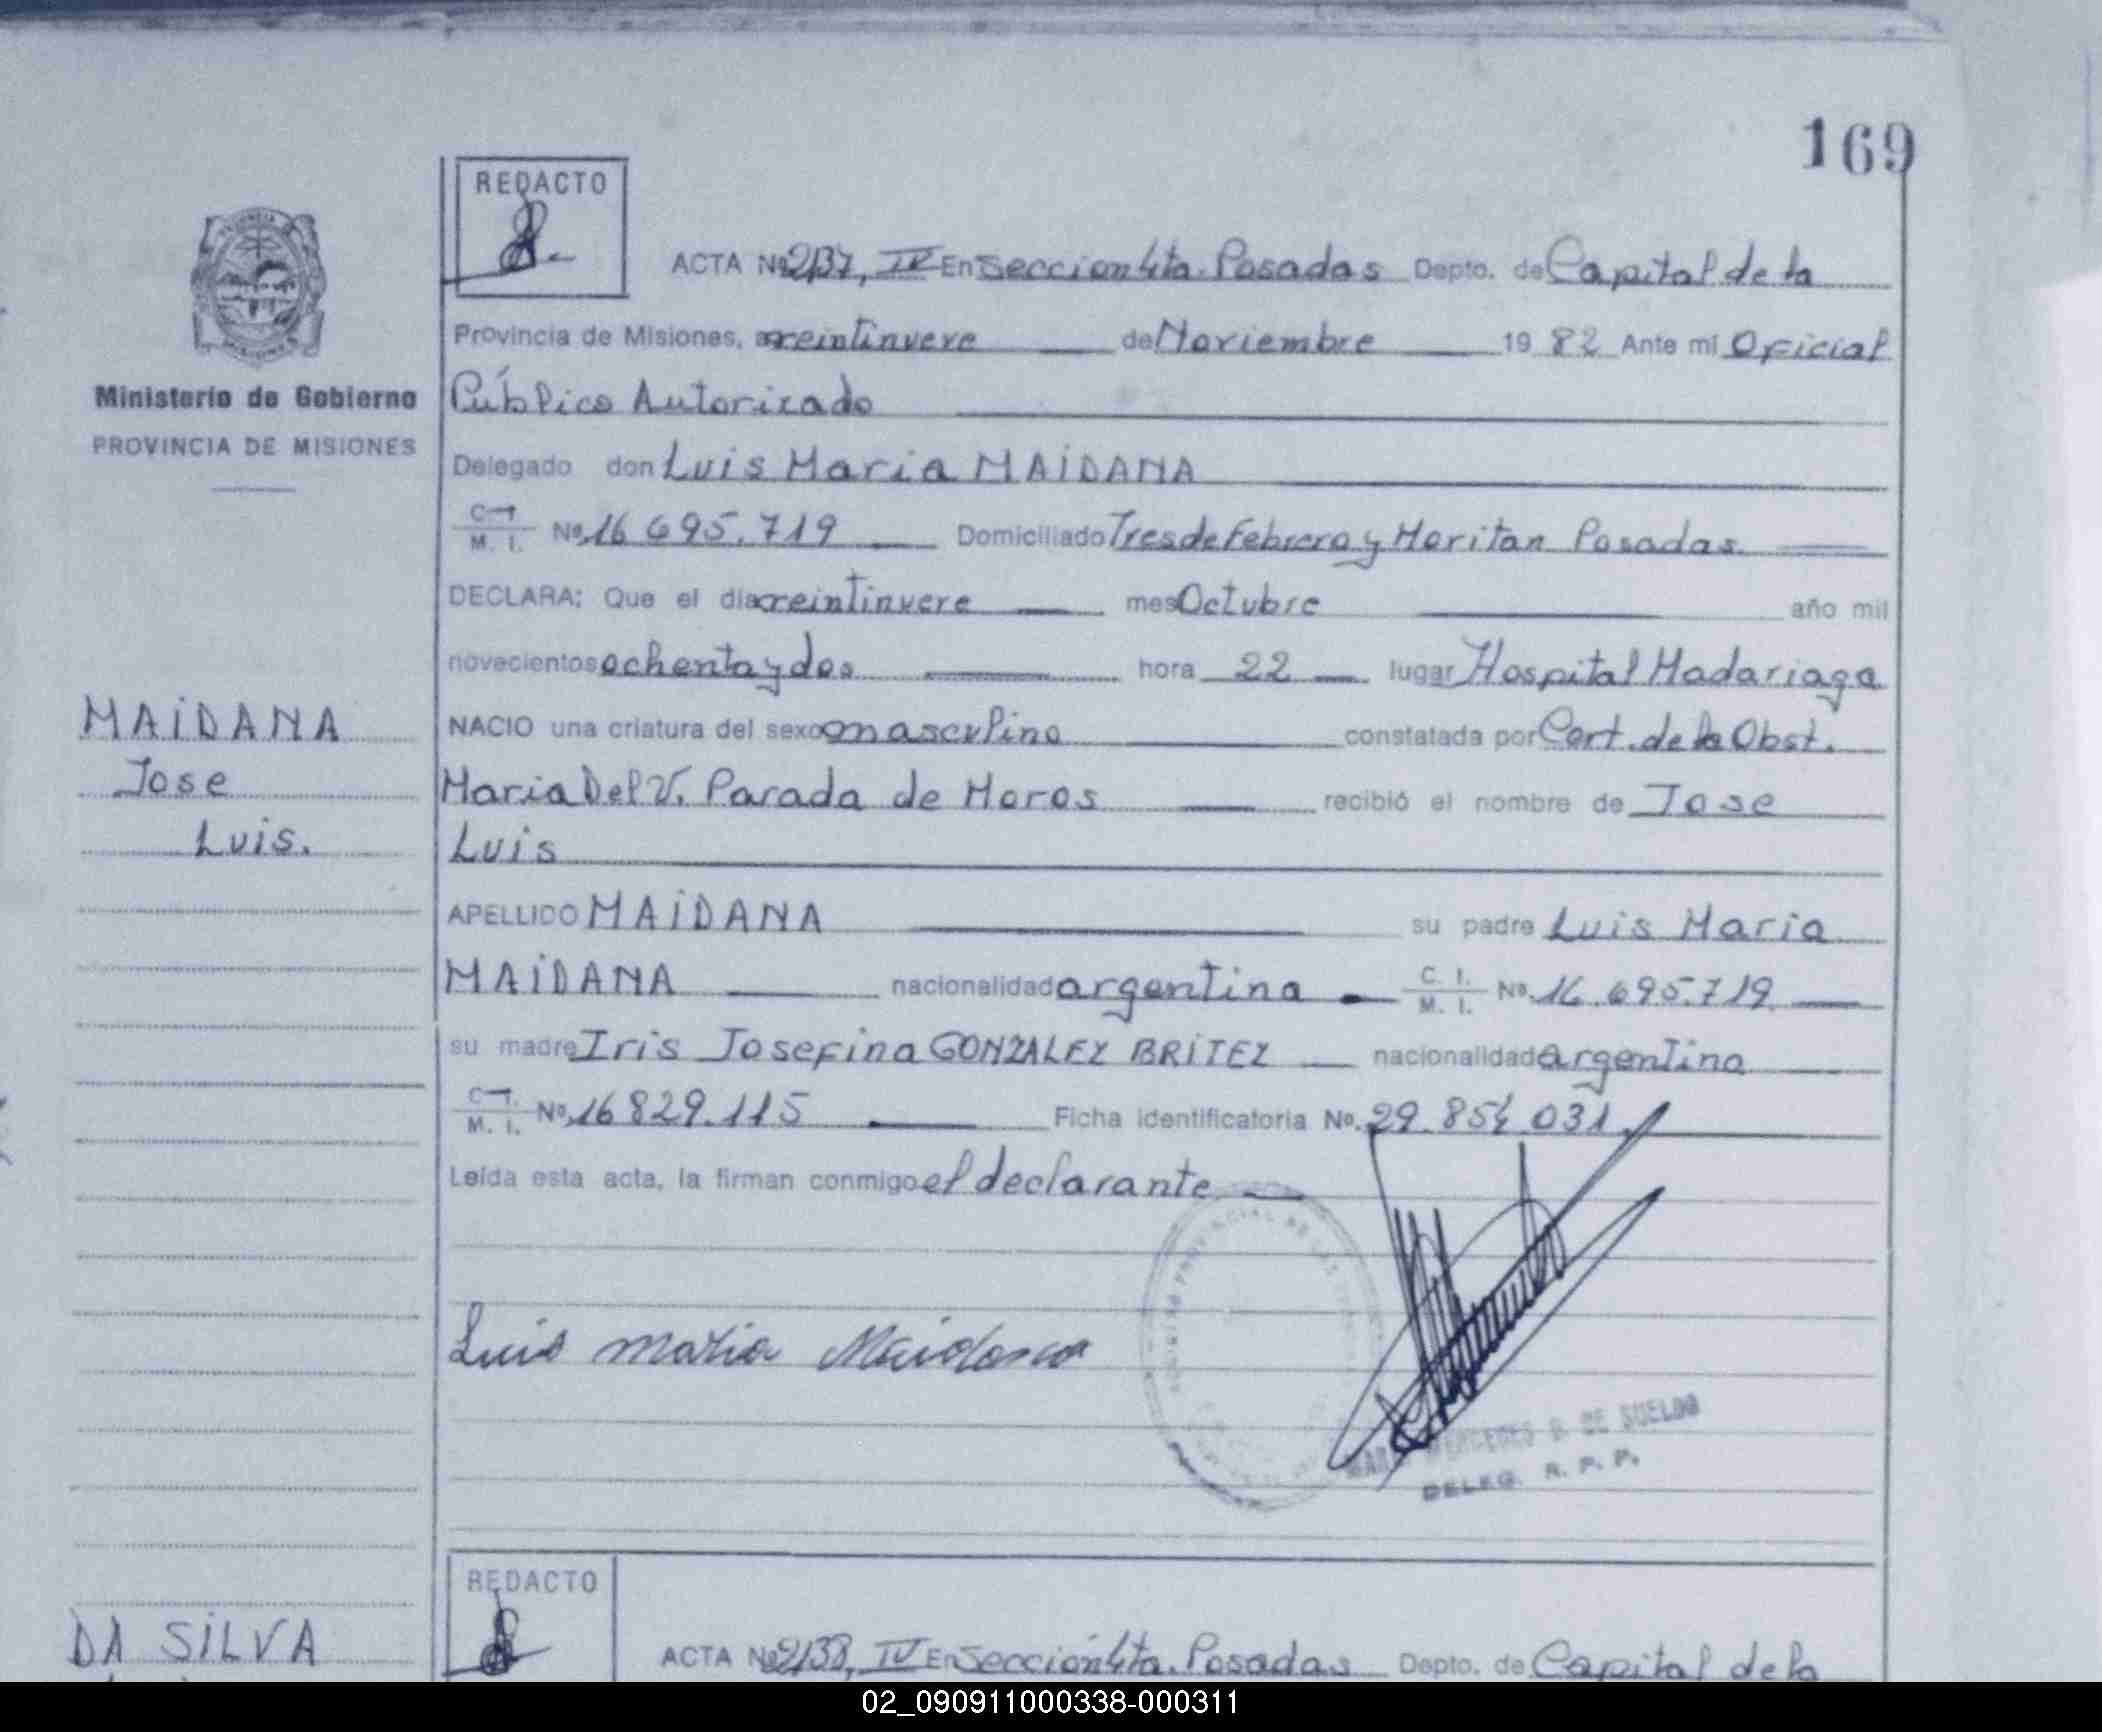 169
REDACTO
ACTA Nº 2137, IV En Seccion 4ta. Posadas Depto. de Capital de la
Provincia de Misiones, a veintinueve de Noviembre 19 82 Ante mí Oficial
Ministerio de Gobierno
Público Autorizado
PROVINCIA DE MISIONES
Delegado don Luis Maria MAIDANA
C. I.
M. I. Nº 16 695.719 Domiciliado Tres de Febrero y Moritan Posadas
DECLARA: Que el dia veintinueve mes Octubre año mil
novecientos ochenta y dos hora 22 lugar Hospital Madariaga
MAIDANA
NACIO una criatura del sexo masculino constatada por Cert. de la Obst.
Jose
Maria Del V. Parada de Moros recibió el nombre de Jose
Luis.
Luis
APELLIDO MAIDANA su padre Luis Maria
MAIDANA nacionalidad argentina C. I.
M. I. Nº 16.695.719
su madre Iris Josefina GONZALEZ BRITEZ nacionalidad argentina
C. I.
M. I. Nº 16 829.115 Ficha identificatoria Nº 29.854 031
Leída esta acta, la firman conmigo el declarante
Luis Maria Maidana
MERCEDES B. DE SUELDO
DELEG. R. P. P.
REDACTO
DA SILVA
ACTA Nº 2138, IV En Sección 4ta. Posadas Depto. de Capital de la
02_090911000338-000311